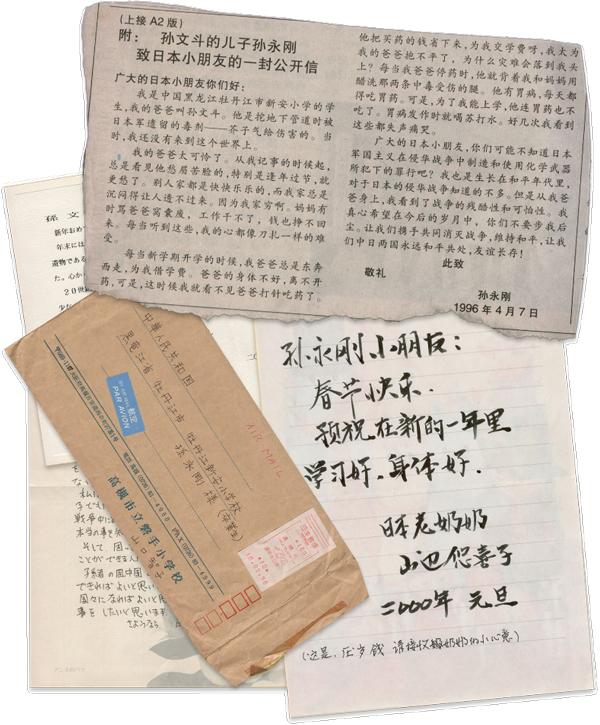 (上接A2版)
附: 孙文斗的儿子孙永刚
致日本小朋友的一封公开信
广大的日本小朋友你们好:
我是中国黑龙江牡丹江市新安小学的学
生,我的爸爸叫孙文斗。他是挖地下管道时被
日本军遗留的毒剂——芥子气给伤害的。当
时,我还没有来到这个世界上。
我的爸爸太可怜了。从我记事的时候起,
总是看见他愁眉苦脸的,特别是逢年过节,就
更愁了。别人家都是快快乐乐的,而我家总是
沉闷得让人透不过来。因为我家穷啊。妈妈有
时骂爸爸窝囊废,工作干不了,钱也挣不回
来。每当听到这些,我的心都像刀扎一样的难
受。
每当新学期开学的时候,我爸爸总是东奔
西走,为我借学费。爸爸的身体不好,离不开
药,可是,这时候我就看不见爸爸打针吃药了。
他把买药的钱省下来,为我交学费呀,我太为
我的爸爸抱不平了,为什么灾难会落到我头
上?每当我爸爸停药时,他就背着我和妈妈用
醋洗那两条中毒受伤的腿。他有胃病,每天都
得吃胃药。可是,为了我能上学,他连胃药也不
吃了。胃病发作时就喝苏打水。好几次我看到
这些都失声痛哭。
广大的日本小朋友,你们可能不知道日本
军国主义在侵华战争中制造和使用化学武器
所犯下的罪行吧?我也是生长在和平年代里,
对于日本的侵华战争知道的不多。但是从我爸
爸身上,我看到了战争的残酷性和可怕性。我
真心希望在今后的岁月中,你们不要步我后
尘。让我们携手共同消灭战争,维持和平,让我
们中日两国永远和平共处,友谊长存!
此致
敬礼
孙永刚
1996年4月7日
孫 文
新年おめ
年末には
遺物である
た。心か
20世紀
中華人民共和国
黒竜江省 牡丹江市
牡丹江新安小学校
孫永剛 様 (卒業生)
航空
PAR AVION
AIR MAIL
高槻市立磐手小学校
孙永刚小朋友:
春节快乐.
预祝在新的一年里
学习好.身体好.
日本老奶奶
山边悠喜子
二000年 元旦
(这是,压岁钱 请接收嫩奶奶的小心意)
戦争中に
本当の事を知
そして、国
ことができる人
できればよいと思い
国々になればよいと思
事をしたいと思います
さようなら